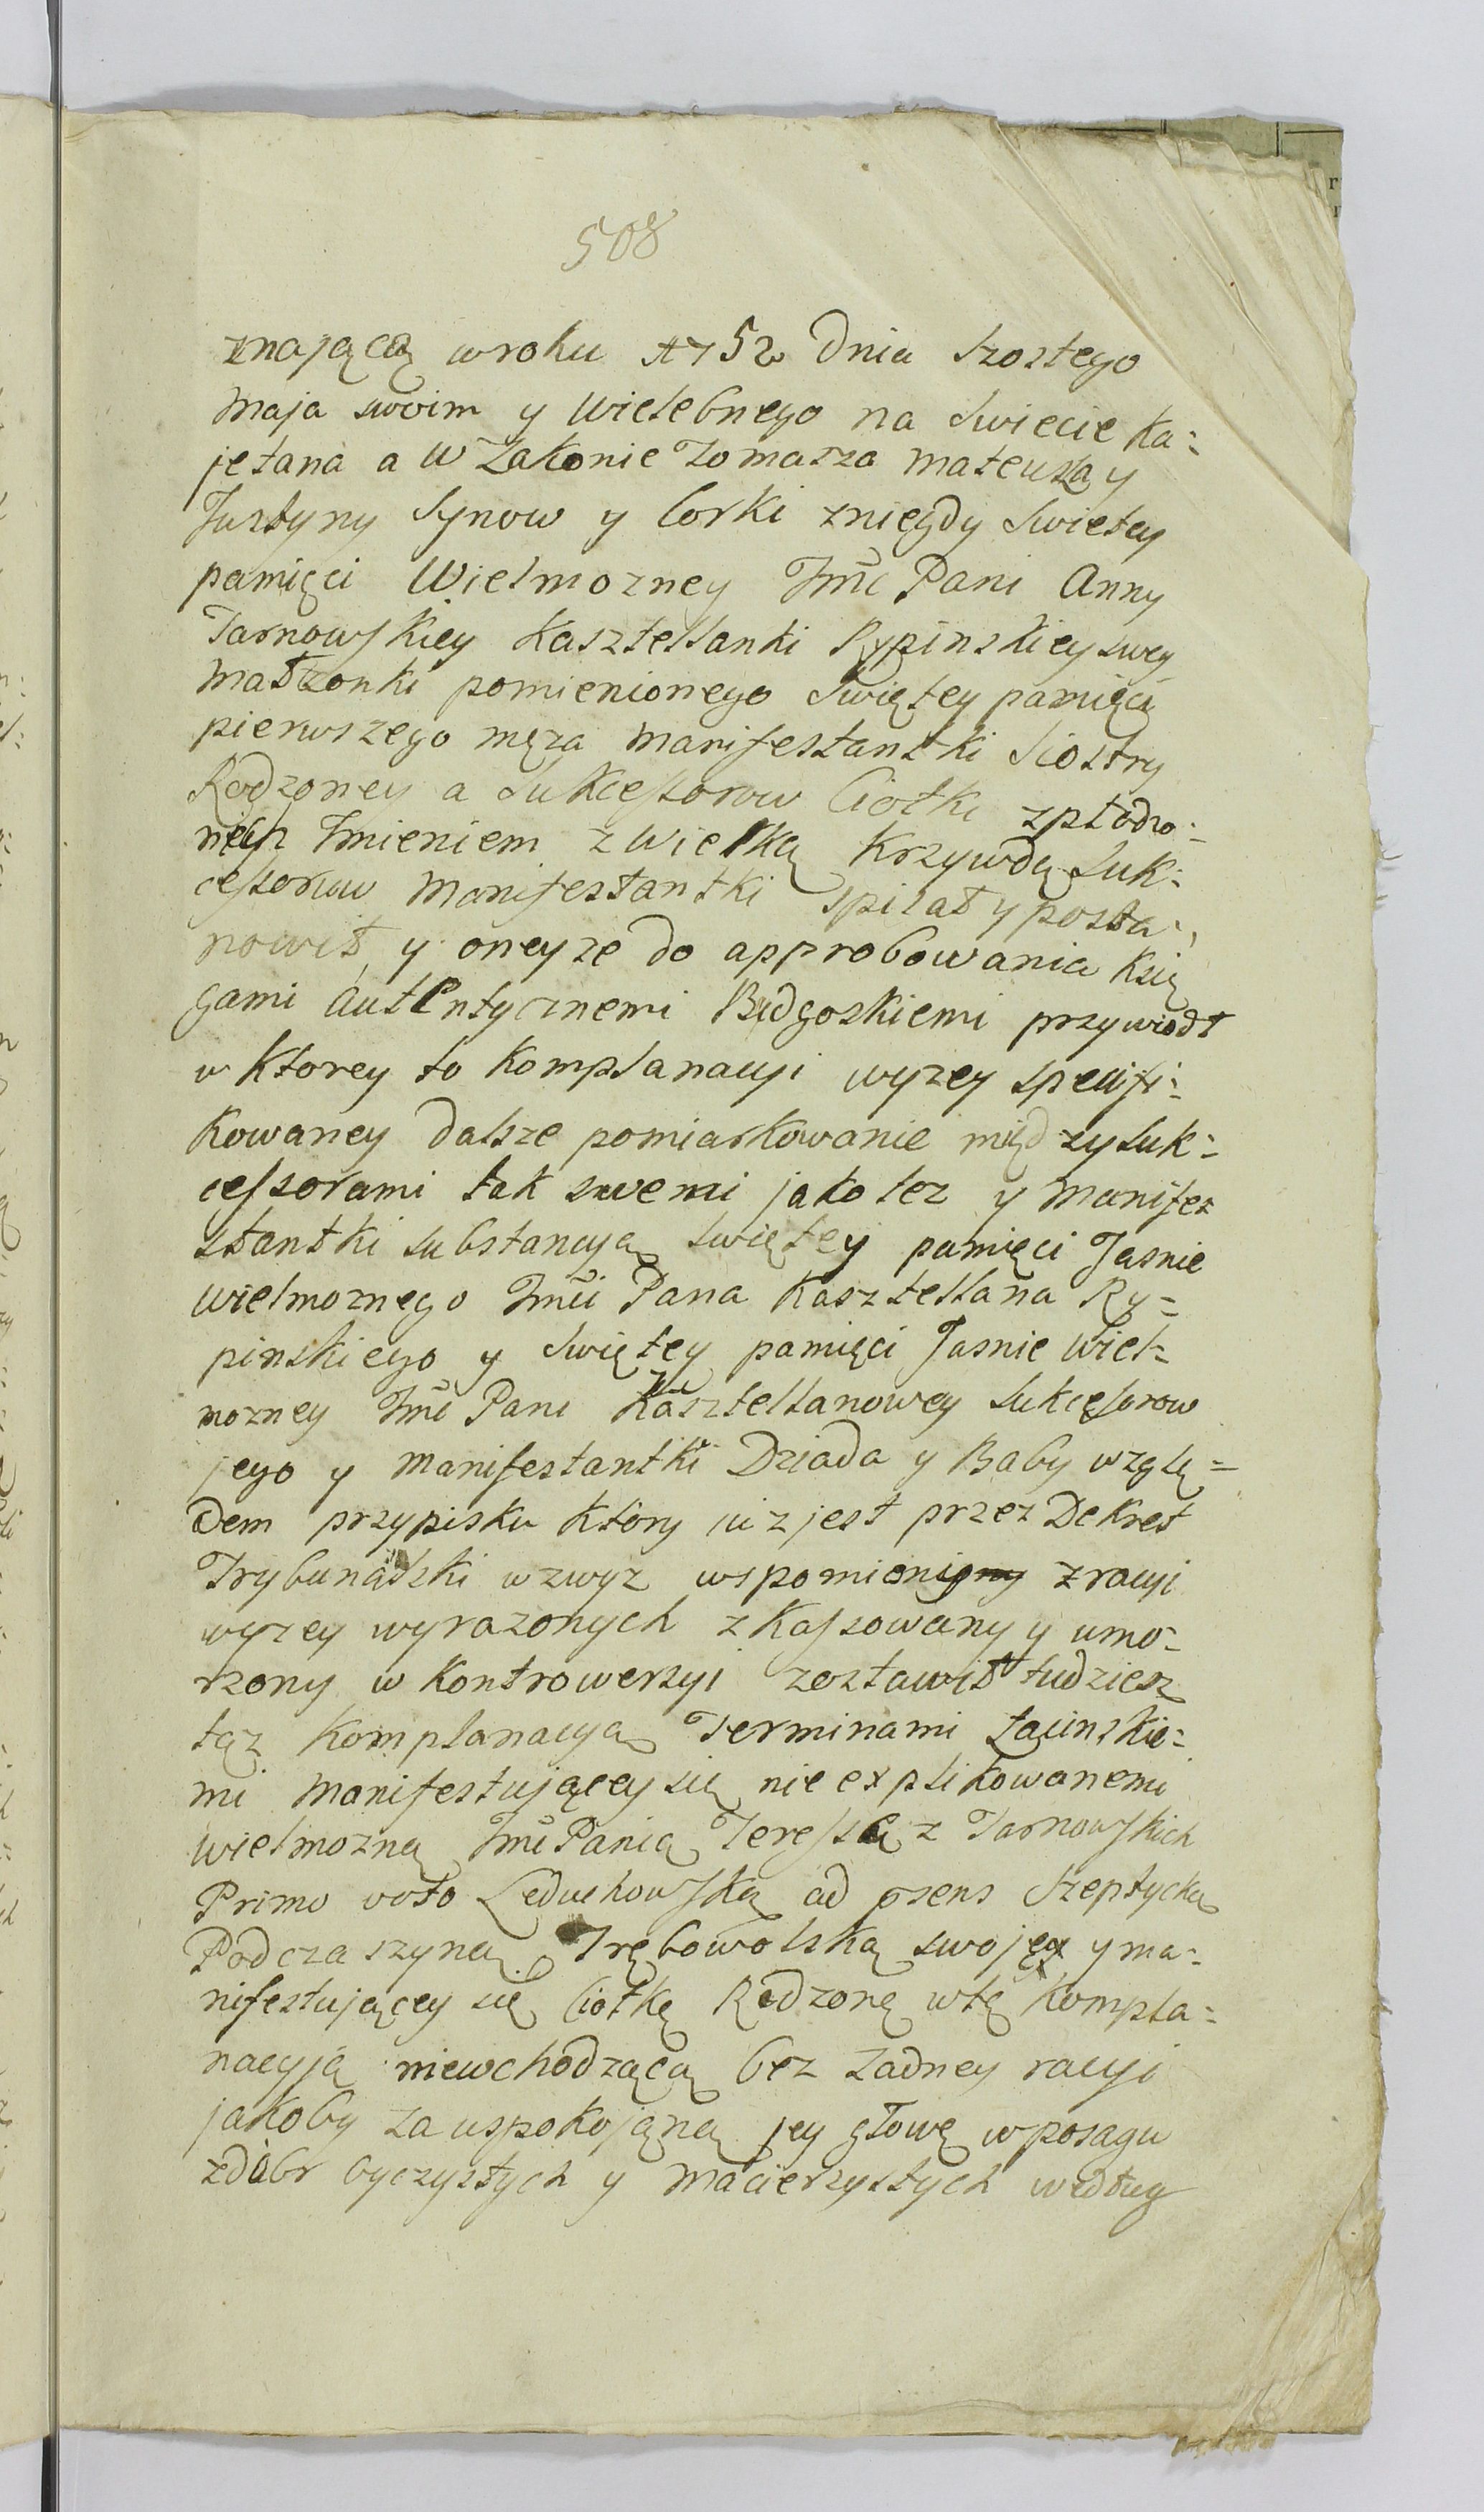 508
znającą w roku 1752 Dnia Szostego
Maja swoim y Wielebnego na Swiecie Ka:
jetana a w Zakonie Tomasza Mateusza y
Justyny Synow y Corki zniegdy Swietey
pamięci Wielmozney Jmci Pani Anny
Tarnowskiey Kasztellanki Rypinskiey swey
Małzonki pomienionego Swiętey pamięci
pierwszego męza Manifestantki Siostry
Rodzoney a Sukcessorow Ciotki zpłodzo:
nych Imieniem z wielką Krzywdą Suk:
cessorow Manifestantki spisał y posta:
nowił, y oneyze do approbowania Księ
gami autentycznemi Bydgoskiemi przywiodł
w Ktorey to Komplanacyi wyzey specifi:
Kowaney dalsze pomiarkowanie między Suk:
cessorami tak swemi jako tez y Manifes
stantki substancyą swiętey pamięci Jasnie
wielmoznego Jmci Pana Kasztellana Ry=
pinskiego y Swiętey pamięci Jasnie Wiel=
mozney Jmci Pani Kasztellanowey Sukcessorow
jego y Manifestantki Dziada y Baby wzglę=
dem przypisku Ktory juz jest przez Dekret
Trybunalski wzwyz wspomniony z racyi
wyzey wyrazonych zkassowany y umo=
rzony w Kontrowersyi zostawił tudziesz
tąz Komplanacyą Terminami Łacinskie=
mi Manifestującey się nie explikowanemi
wielmozną Jmci Panią Teressę z Tarnowskich
Primo voto Leduchowską ad psens Szeptycką
Podczaszyną Trębowolską swoję y ma:
nifestującey się Ciotkę Rodzoną w tę Kompla:
nacyją niewchodzącą bez Zadney racyi
jakoby za uspokojąną jey głowę w posagu
z dobr oyczystych y Macierzystych według